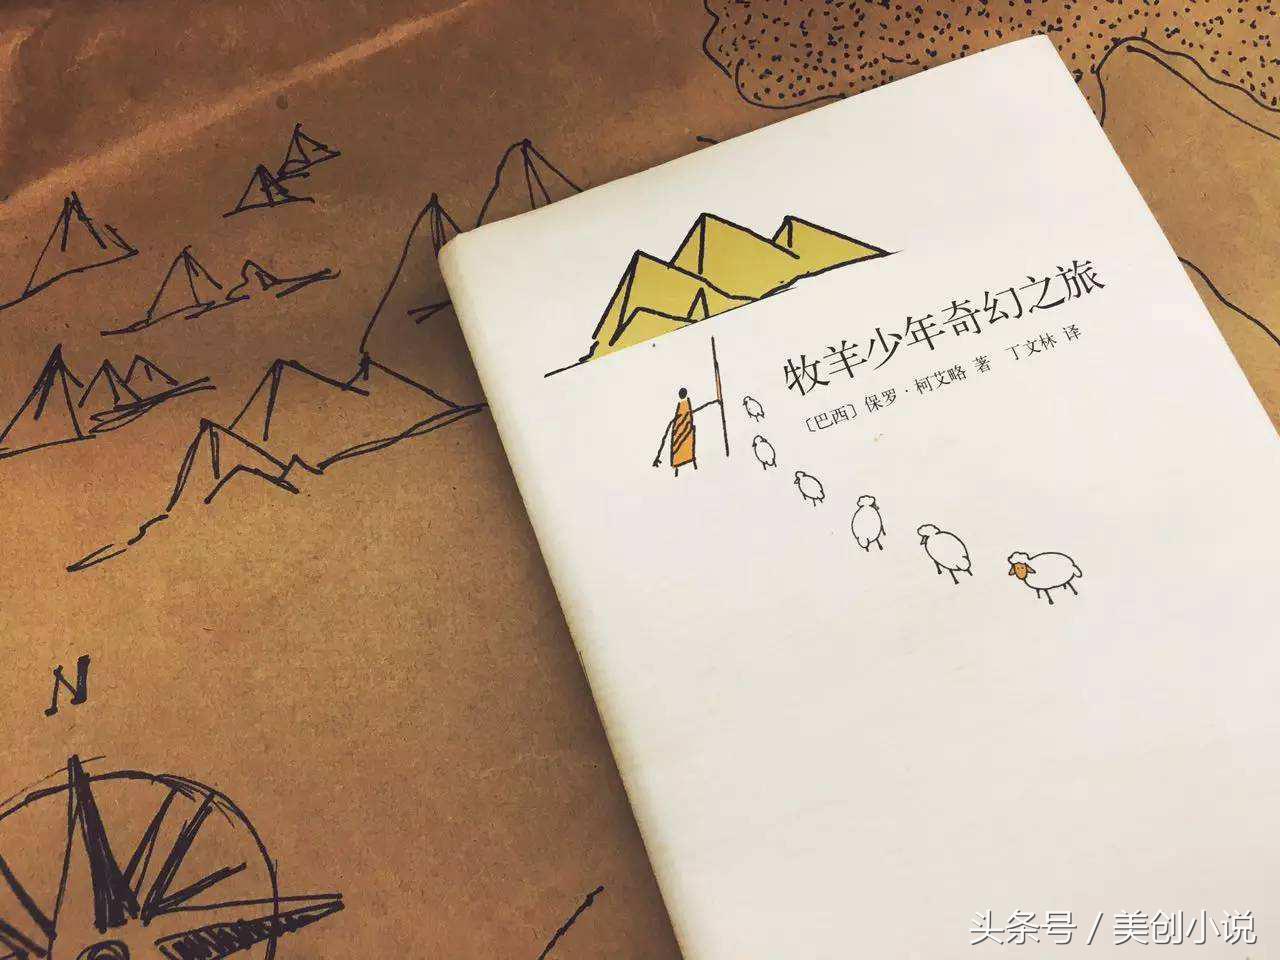 牧羊少年奇幻之旅
〔巴西〕保罗·柯艾略 著 丁文林 译
N
头条号 / 美创小说